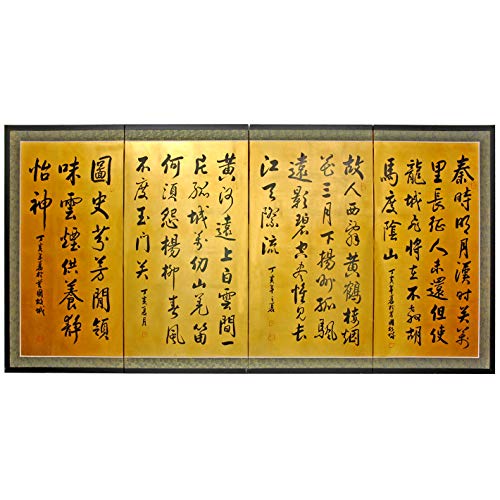 秦時明月漢时关萬
里長征人未還但使
龍城飛將在不教胡
馬度陰山
故人西辞黄鶴楼烟
花三月下揚州孤帆
遠影碧空尽惟見长
江天際流
丁亥年夏
黄河遠上白雲間一
片孤城萬仞山羌笛
何須怨楊柳春風
不度玉门关
丁亥夏月
圖史芬芳閒領
味雲煙供養静
怡神
丁亥年夏於